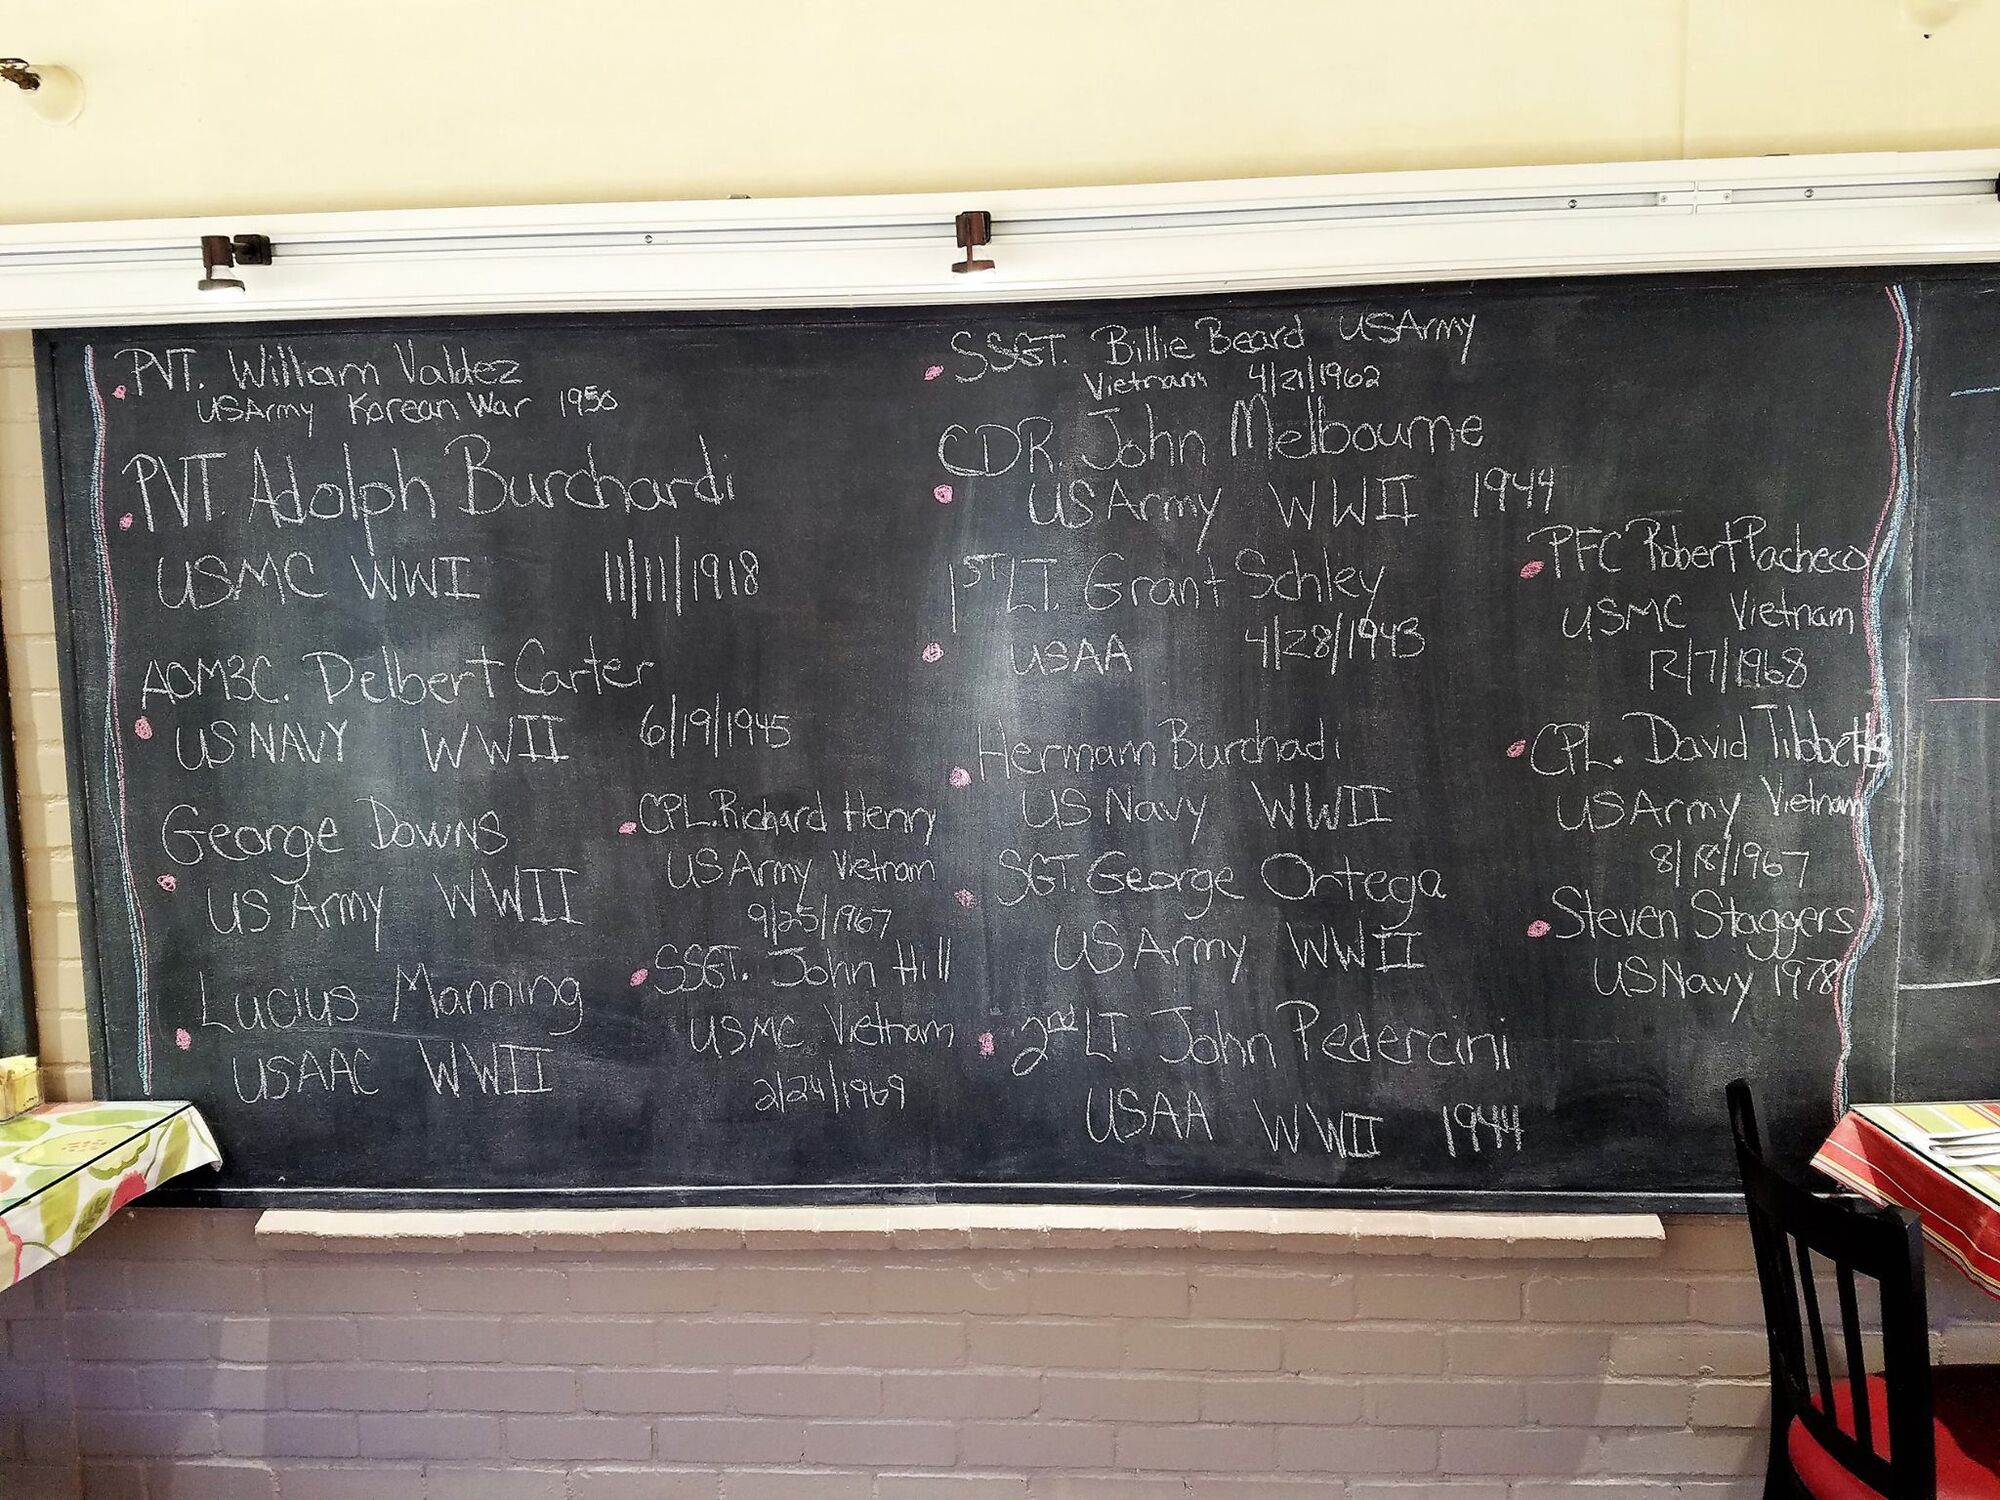 PVT. William Valdez
US Army Korean War 1950
PVT. Adolph Burchardi
USMC WWI 11/11/1918
AOM3C. Delbert Carter
US NAVY WWII 6/19/1945
George Downs
US Army WWII
Lucius Manning
USAAC WWII
CPL. Richard Henry
US Army Vietnam
9/25/1967
SSGT. John Hill
USMC Vietnam
2/24/1969
SSGT. Billie Beard US Army
Vietnam 4/21/1962
CDR. John Melbourne
US Army WWII 1944
1ST LT. Grant Schley
USAA 4/28/1943
Hermann Burchadi
US Navy WWII
SGT. George Ortega
US Army WWII
2nd LT. John Pedercini
USAA WWII 1944
PFC Robert Pacheco
USMC Vietnam
12/7/1968
CPL. David Tibbetts
US Army Vietnam
8/18/1967
Steven Staggers
US Navy 1978